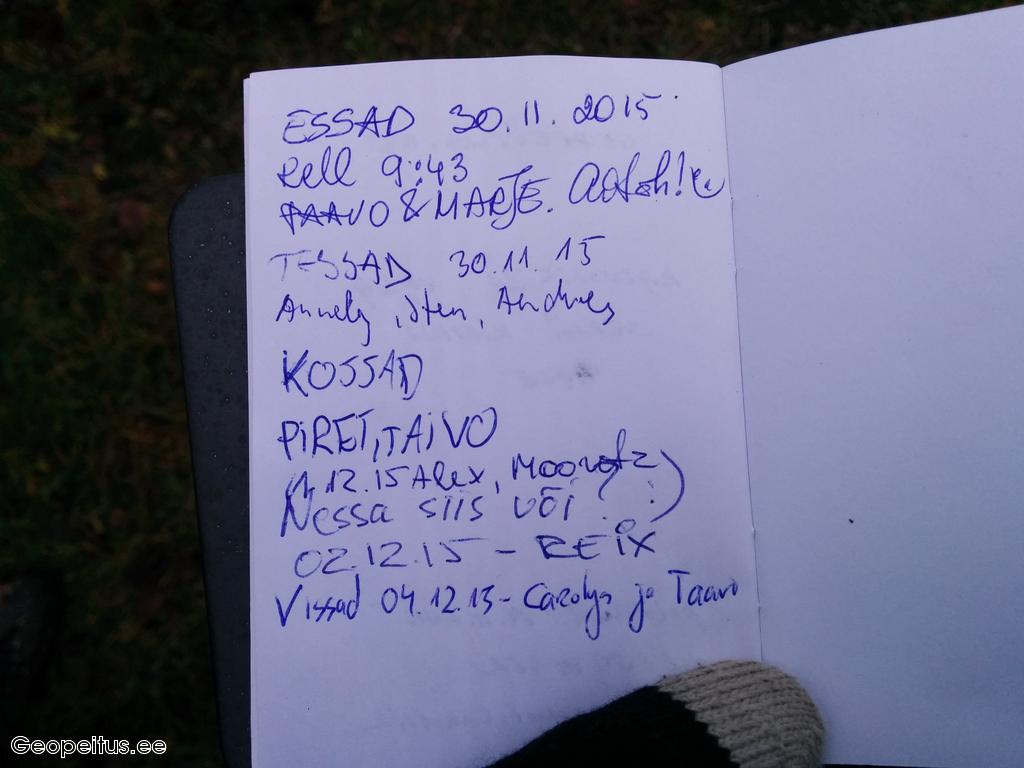 ESSAD 30.11.2015
kell 9:43
TAAVO & MARJE.
TESSAD 30.11.15
Annely, Sten, Andres
KOSSAD
PiRET, TAiVO
1.12.15 Alex,
Nessa siis või? :)
02.12.15 - REiX
Vissad 04.12.15 - Carolyn ja Taavo
Geopeitus.ee